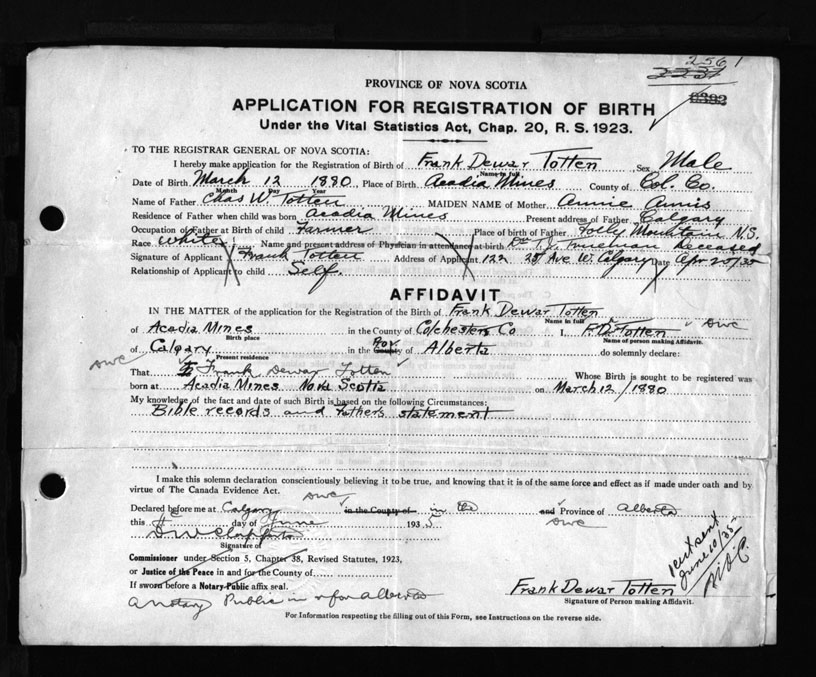 2561
PROVINCE OF NOVA SCOTIA
APPLICATION FOR REGISTRATION OF BIRTH
Under the Vital Statistics Act, Chap. 20, R. S. 1923.
TO THE REGISTRAR GENERAL OF NOVA SCOTIA:
I hereby make application for the Registration of Birth of Frank Dewar Totten Sex Male
Name in full
Date of Birth March 12 1880, Place of Birth Acadia Mines County of Col. Co.
Month Day Year
Name of Father Chas W Totten MAIDEN NAME of Mother Annie Annis
Residence of Father when child was born Acadia Mines Present address of Father Calgary
Occupation of Father at Birth of child Farmer Place of birth of Father Folly Mountain N.S.
Race white Name and present address of Physician in attendance at birth Dr T. J. Deceased
Signature of Applicant Frank Totten Address of Applicant 122 Ave W. Calgary Date Apr
Relationship of Applicant to child Self.
AFFIDAVIT
IN THE MATTER of the application for the Registration of the Birth of Frank Dewar Totten
Name in full
of Acadia Mines in the County of Colchester Co I, F. D. Totten
Birth place Name of person making Affidavit.
of Calgary in the County Prov Alberta do solemnly declare:
Present residence
That Frank Dewar Totten Whose Birth is sought to be registered was
born at Acadia Mines Nova Scotia on March 12 / 1880
My knowledge of the fact and date of such Birth is based on the following Circumstances:
Bible records and Fathers statement
I make this solemn declaration conscientiously believing it to be true, and knowing that it is of the same force and effect as if made under oath and by
virtue of The Canada Evidence Act.
Declared before me at Calgary in the County of in the and Province of Alberta
this day of June 1935
Signature of
Commissioner under Section 5, Chapter 38, Revised Statutes, 1923,
or Justice of the Peace in and for the County of
If sworn before a Notary Public affix seal.
a notary Public in & for Alberta
Frank Dewar Totten
Signature of Person making Affidavit.
sent
June 10/35
For Information respecting the filling out of this Form, see Instructions on the reverse side.